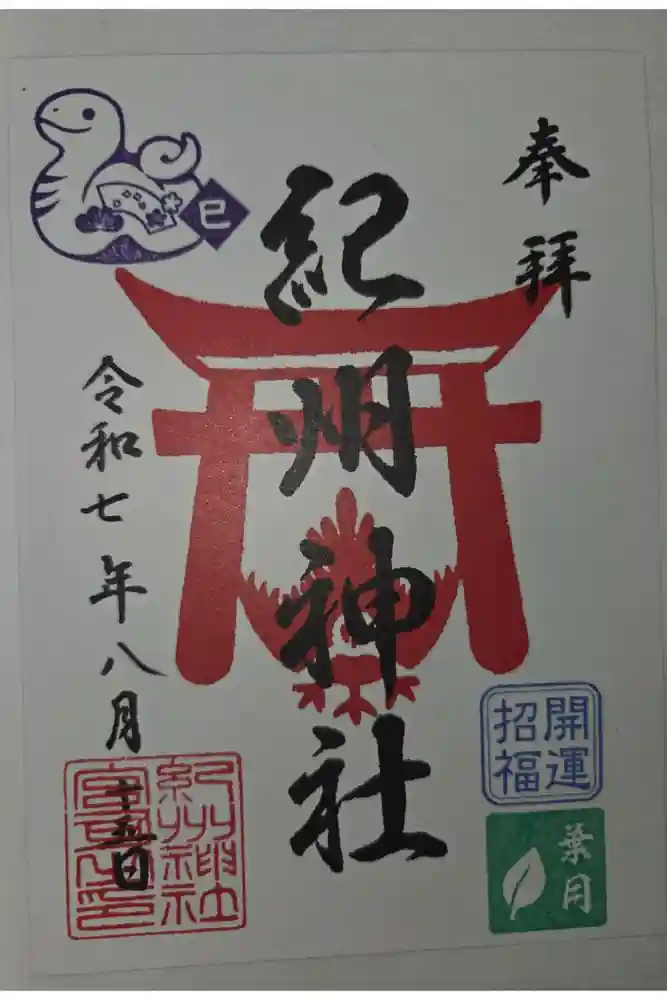 奉拝
開運
招福
葉月
紀州神社
巳
令和七年八月十五日
紀州神社
宮司之印